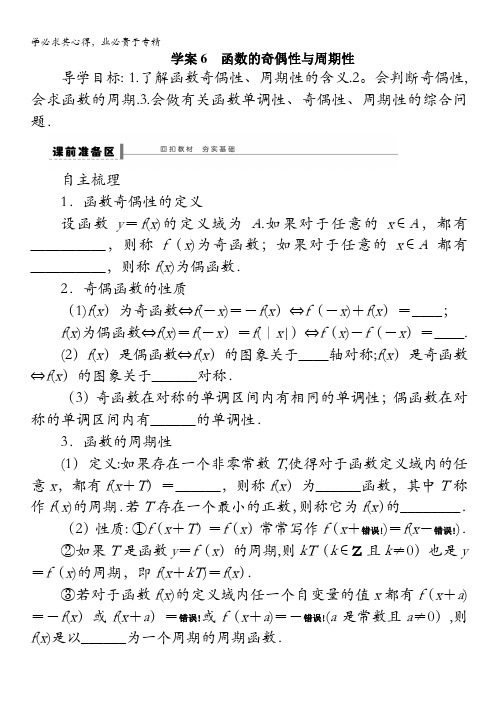 学必求其心得，业必贵于专精
学案6　函数的奇偶性与周期性
导学目标: 1.了解函数奇偶性、周期性的含义.2。会判断奇偶性,
会求函数的周期.3.会做有关函数单调性、奇偶性、周期性的综合问
题．
课前准备区 回扣教材 夯实基础
自主梳理
1．函数奇偶性的定义
设函数 y＝f(x)的定义域为 A.如果对于任意的 x∈A，都有
__________，则称 f（x)为奇函数；如果对于任意的 x∈A 都有
__________，则称 f(x)为偶函数．
2．奇偶函数的性质
（1)f(x）为奇函数⇔f(－x)＝－f(x）⇔f（－x)＋f(x）＝____；
f(x)为偶函数⇔f(x)＝f(－x）＝f(｜x|）⇔f（x)－f（－x）＝____.
(2）f(x）是偶函数⇔f(x）的图象关于____轴对称;f(x）是奇函数
⇔f(x）的图象关于______对称．
（3）奇函数在对称的单调区间内有相同的单调性；偶函数在对
称的单调区间内有______的单调性．
3．函数的周期性
(1）定义:如果存在一个非零常数 T,使得对于函数定义域内的任
意 x，都有 f(x＋T）＝______，则称 f(x）为______函数，其中 T 称
作 f(x)的周期.若 T 存在一个最小的正数,则称它为 f(x)的________．
（2）性质: ①f（x＋T）＝f(x）常常写作 f（x＋错误!)＝f(x－错误!)．
②如果 T 是函数 y＝f（x）的周期,则 kT（k∈Z 且 k≠0）也是 y
＝f（x)的周期，即 f(x＋kT)＝f(x)．
③若对于函数 f(x)的定义域内任一个自变量的值 x 都有 f（x＋a)
＝－f(x）或 f(x＋a）＝错误!或 f（x＋a)＝－错误!(a 是常数且 a≠0）,则
f(x)是以______为一个周期的周期函数．